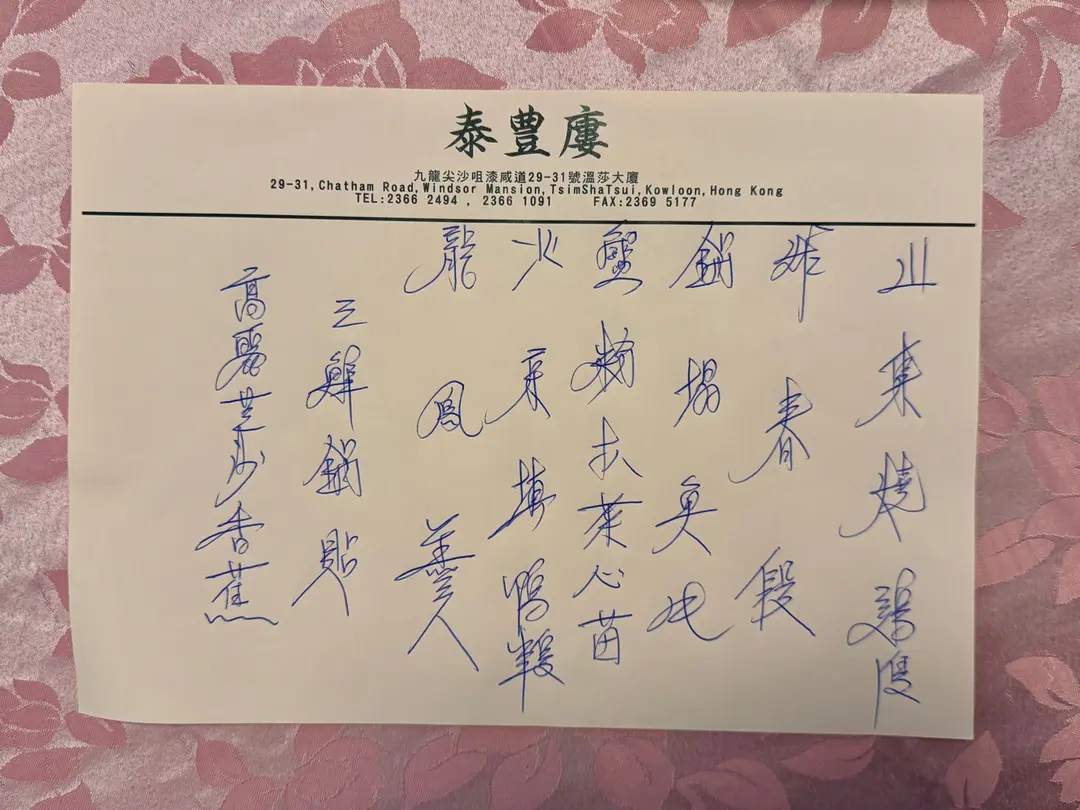 泰豐廔
九龍尖沙咀漆咸道29-31號溫莎大廈
29-31,Chatham Road,Windsor Mansion,TsimShaTsui,Kowloon,Hong Kong
TEL:2366 2494 , 2366 1091 FAX:2369 5177
山東燒雞
炸春段
鍋塌魚
蟹粉扒菜心苗
火京填鴨
龍鳳
三鮮鍋貼
高麗豆沙香蕉